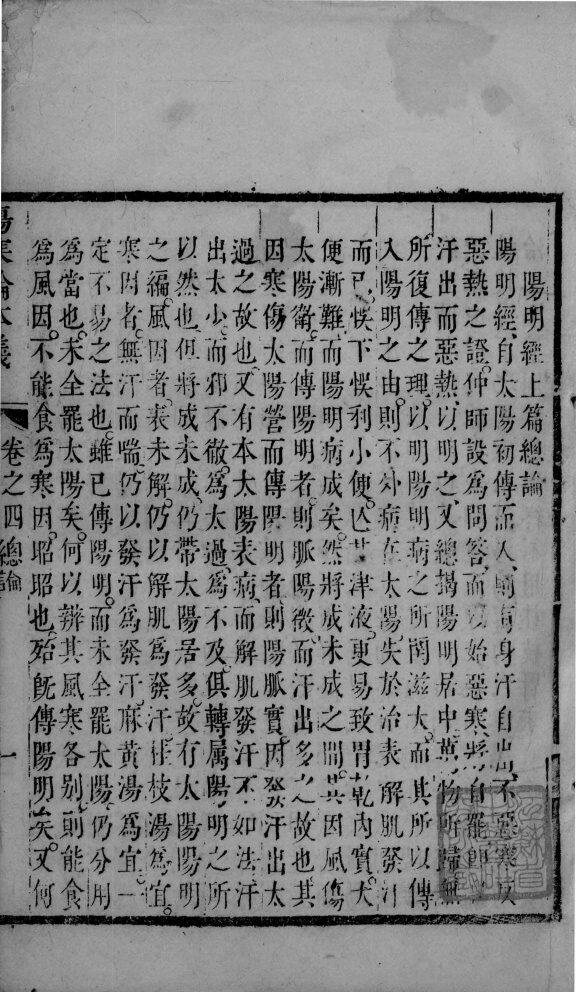 陽明經上篇總論
陽明經自太陽初傳而入則有身汗自出不惡寒反
惡熱之證仲師設爲問答而以始惡寒將自罷即
汗出而惡熱以明之又總揭陽明居中萬物所歸無
所復傳之理以明陽明病之所關滋大而其所以傳
入陽明之由則不外病在太陽失於治表解肌發汗
而已悞下悞利小便亡其津液更易致胃乾內實大
便漸難而陽明病成矣然將成未成之間其因風傷
太陽衛而傳陽明者則脈陽微而汗出多之故也其
因寒傷太陽營而傳陽明者則陽脈實因發汗出太
過之故也又有本太陽表病而解肌發汗不如法汗
出太少而邪不徹爲太過爲不及俱轉属陽明之所
以然也但將成未成仍帶太陽居多故有太陽陽明
之編風因者表未解仍以解肌爲發汗桂枝湯爲宜
寒因者無汗而喘仍以發汗爲發汗麻黃湯爲宜一
定不易之法也雖已傳陽明而未全罷太陽仍分用
爲當也未全罷太陽矣何以辨其風寒各別則能食
爲風因不能食爲寒因昭昭也殆旣傳陽明矣又何
傷寒論本義 卷之四總論 一